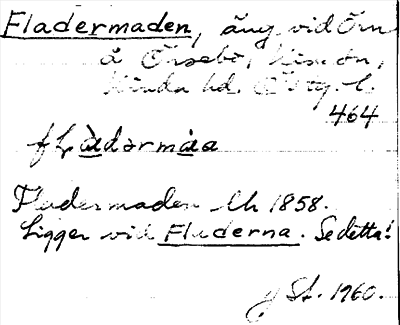 Fladermaden, äng vid Örn
å Örsebo, Kinda hd. Östg. l.
464
flàdərmàa
Fladermaden Lk 1858.
Ligger vid Fladerna. Se detta!
St. 1960.